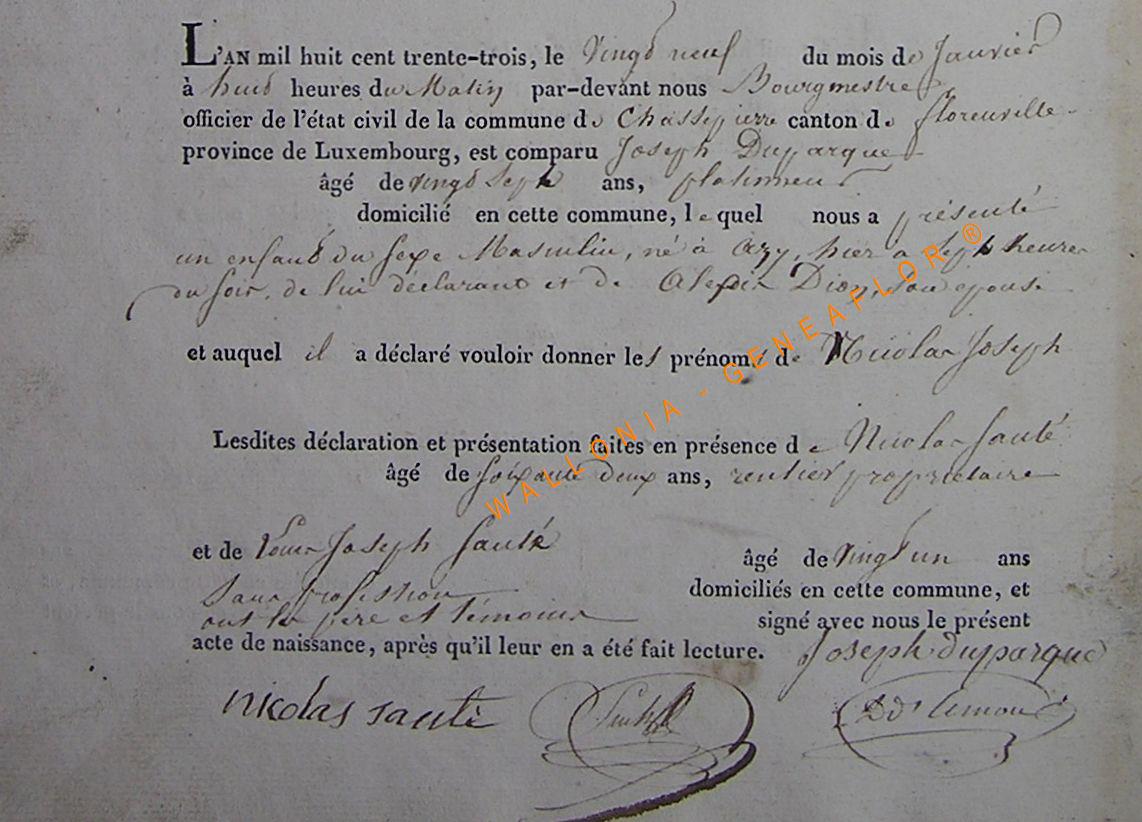 L'AN mil huit cent trente-trois, le vingt neuf du mois de Janvier
à huit heures du Matin par-devant nous Bourgmestre
officier de l'état civil de la commune de Chassepierre canton de florenville
province de Luxembourg, est comparu Joseph Duparque
âgé de vingt sept ans, platineur
domicilié en cette commune, le quel nous a présenté
un enfant du sexe Masculin, né à Azy, hier à sept heures
du soir, de lui déclarant et de Dion, son épouse
et auquel il a déclaré vouloir donner les prénoms de Nicolas Joseph
Lesdites déclaration et présentation faites en présence de Nicolas Sauté
âgé de soixante deux ans, rentier propriétaire
et de Louis Joseph Sauté âgé de vingt un ans
sans profession domiciliés en cette commune, et
ont les père et témoins signé avec nous le présent
acte de naissance, après qu'il leur en a été fait lecture. Joseph duparque
nicolas sauté
WALLONIA - GENEAFLOR ®